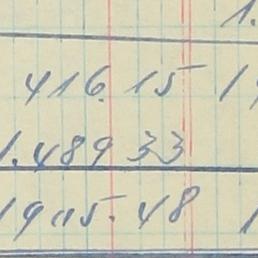 1.
416.15 1
1.489 33
1905.48 1